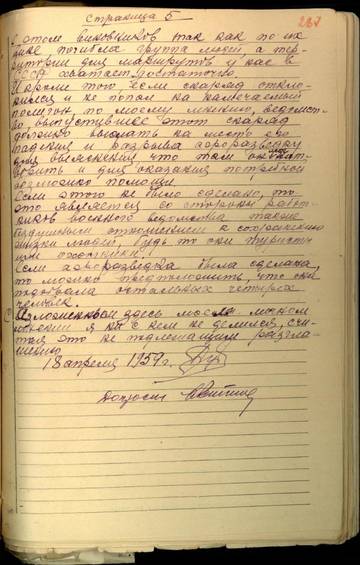 Страница 5
267
в этом виновников так как по их
вине погибла группа людей, а тер-
ритории для маршрутов у нас в
СССР хватает достаточно.
И кроме того, если снаряд откло-
нился и не попал на намеченный
полигон, то по моему мнению, ведомст-
во, выпустившее этот снаряд
должно выслать на место его
падения и разрыва аэроразведку
для выяснения что там он мог нат-
ворить и для оказания потребной
возможно помощи.
Если этого не было сделано, то
это является со стороны работ-
ников военного ведомства также
бездушным отношением к сохранению
жизни людей, будь то они туристы
или охотники.
Если аэроразведка была сделана,
то можно предположить, что они
подобрала остальных четырех
человек.
Изложенным здесь моем личном
мнении я ни с кем не делился, счи-
тая это не подлежащим разгла-
шению.
18 апреля 1959 г.
Допросил